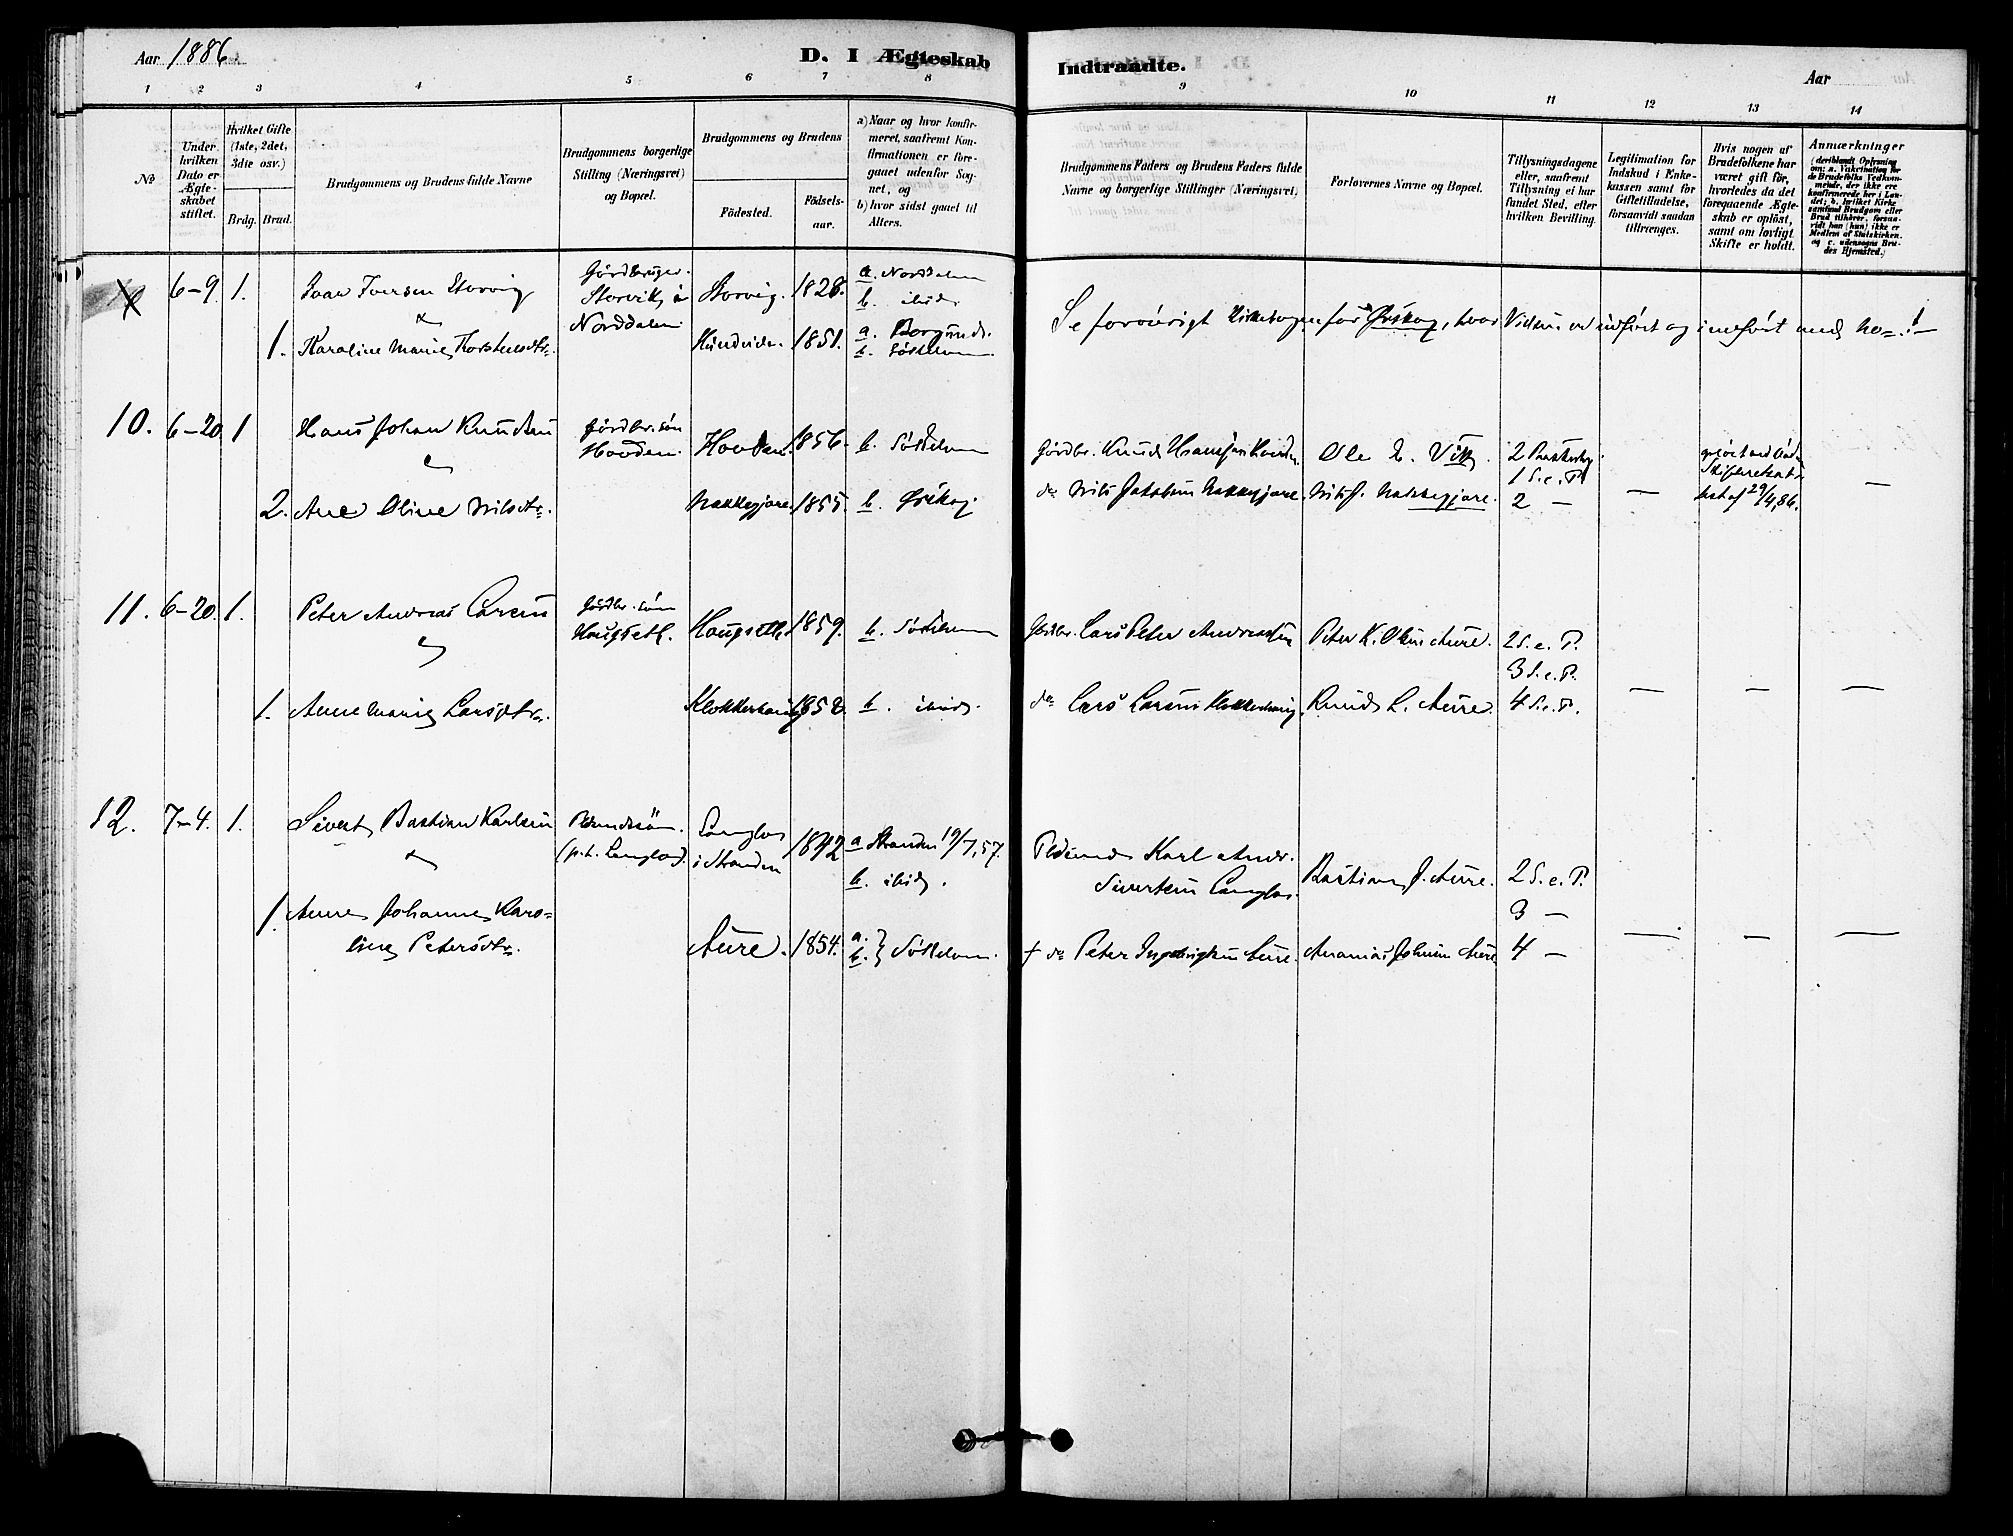 Aar 1886
D. I Ægteskab
Indtraadte.
Aar
1 2 3 4 5 6 7 8 9 10 11 12 13 14
№
Under hvilken Dato er Ægteskabet stiftet.
Hvilket Gifte (1ste, 2det, 3die osv.)
Brdg.
Brud.
Brudgommens og Brudens fulde Navne
Brudgommens borgerlige Stilling (Næringsvei) og Bopæl.
Brudgommens og Brudens
Födested.
Födselsaar.
a) Naar og hvor konfirmeret, saafremt Konfirmationen er foregaaet udenfor Sognet, og
b) hvor sidst gaaet til Alters.
Brudgommens Faders og Brudens Faders fulde Navne og borgerlige Stillinger (Næringsvei)
Forlovernes Navne og Bopæl.
Tillysningsdagene eller, saafremt Tillysning ei har fundet Sted, efter hvilken Bevilling.
Legitimation for Indskud i Enkekassen samt for Giftetilladelse, forsaavidt saadan tiltrænges.
Hvis nogen af Brudefolkene har været gift för, hvorledes da det foregaaende Ægteskab er oplöst, samt om lovligt Skifte er holdt.
Anmærkninger
(deriblandt Oplysning om: a. Vakcination for de Brudefolks Vedkommende, der ikke ere konfirmerede her i Landet; b. hvilket Kirkesamfund Brudgom eller Brud tilhörer, forsaavidt han (hun) ikke er Medlem af Statskirken, og c. udensogns Brudes Hjemsted.)
6-9. 1. Ivar Iversen Storvig
Gårdbruger. Storvik i Norddalen
Storvig. 1828. a. Norddalen
b. ibid.
1. Karoline Marie Torstensdtr.
1851. a. Borgund.
b. Søkkelven
Se forøvrigt Kirkebogen for Ørskog, hvor Vielsen er udført og indført med No 1
10. 6-20 1 Hans Johan Knudsen
Gårdbr. søn Hovden.
Hovden. 1856. b. Søkkelven
Gårdbr. Knud Hansen Hovden
Ole L. Vik.
2
1 S. e. P.
2. Ane Oline Nilsdtr.
Nakkegjære. 1855. b. Ørskog
do Nils Jakobsen Nakkegjære.
Nils J. Nakkegjære.
2 — —
29/4,86. —
11. 6-20. 1. Peter Andreas Larsen
Gårdbr. søn Haugseth.
Haugseth. 1859. b. Søkkelven
Gårdbr. Lars Peter Andreassen
Peter K. Olsen Aure.
2 S. e. P.
3 S. e. P.
1. Anne Marie Larsdtr.
Klokkerhaug 1858. b. ibid.
do Lars Larsen Klokkerhaug
Knud L. Aure.
4 S. e. P. — — —
12. 7-4. 1. Sivert Bastian Karlsen
Pladsmandssøn. (p. t. Langlo).
Langlo i Stranden
1842 a Stranden 19/7,57.
b. ibid.
Pladsmand Karl Andr. Sivertsen Langlo.
Bastian J. Aure.
2 S. e. P.
3 —
1. Anne Johanne Karoline Petersdtr.
Aure. 1854. a. b. } Søkkelven.
† do Peter Ingebrigtsen Aure.
Ananias Johnsen Aure
4 — — — —